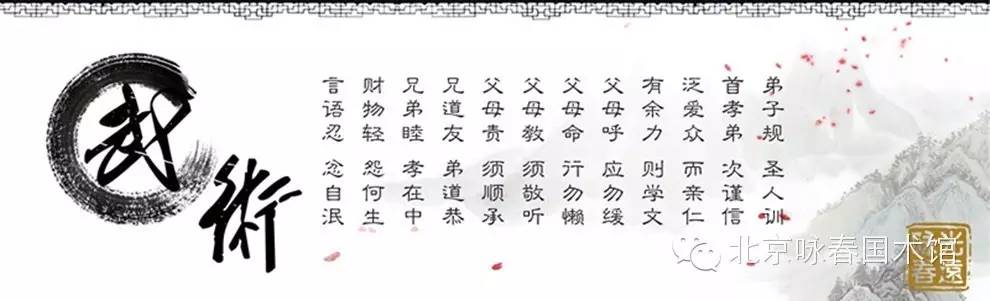 武術
弟子规 圣人训
首孝弟 次谨信
泛爱众 而亲仁
有余力 则学文
父母呼 应勿缓
父母命 行勿懒
父母教 须敬听
父母责 须顺承
兄道友 弟道恭
兄弟睦 孝在中
财物轻 怨何生
言语忍 忿自泯
北京咏春国术馆
光遠
咏春